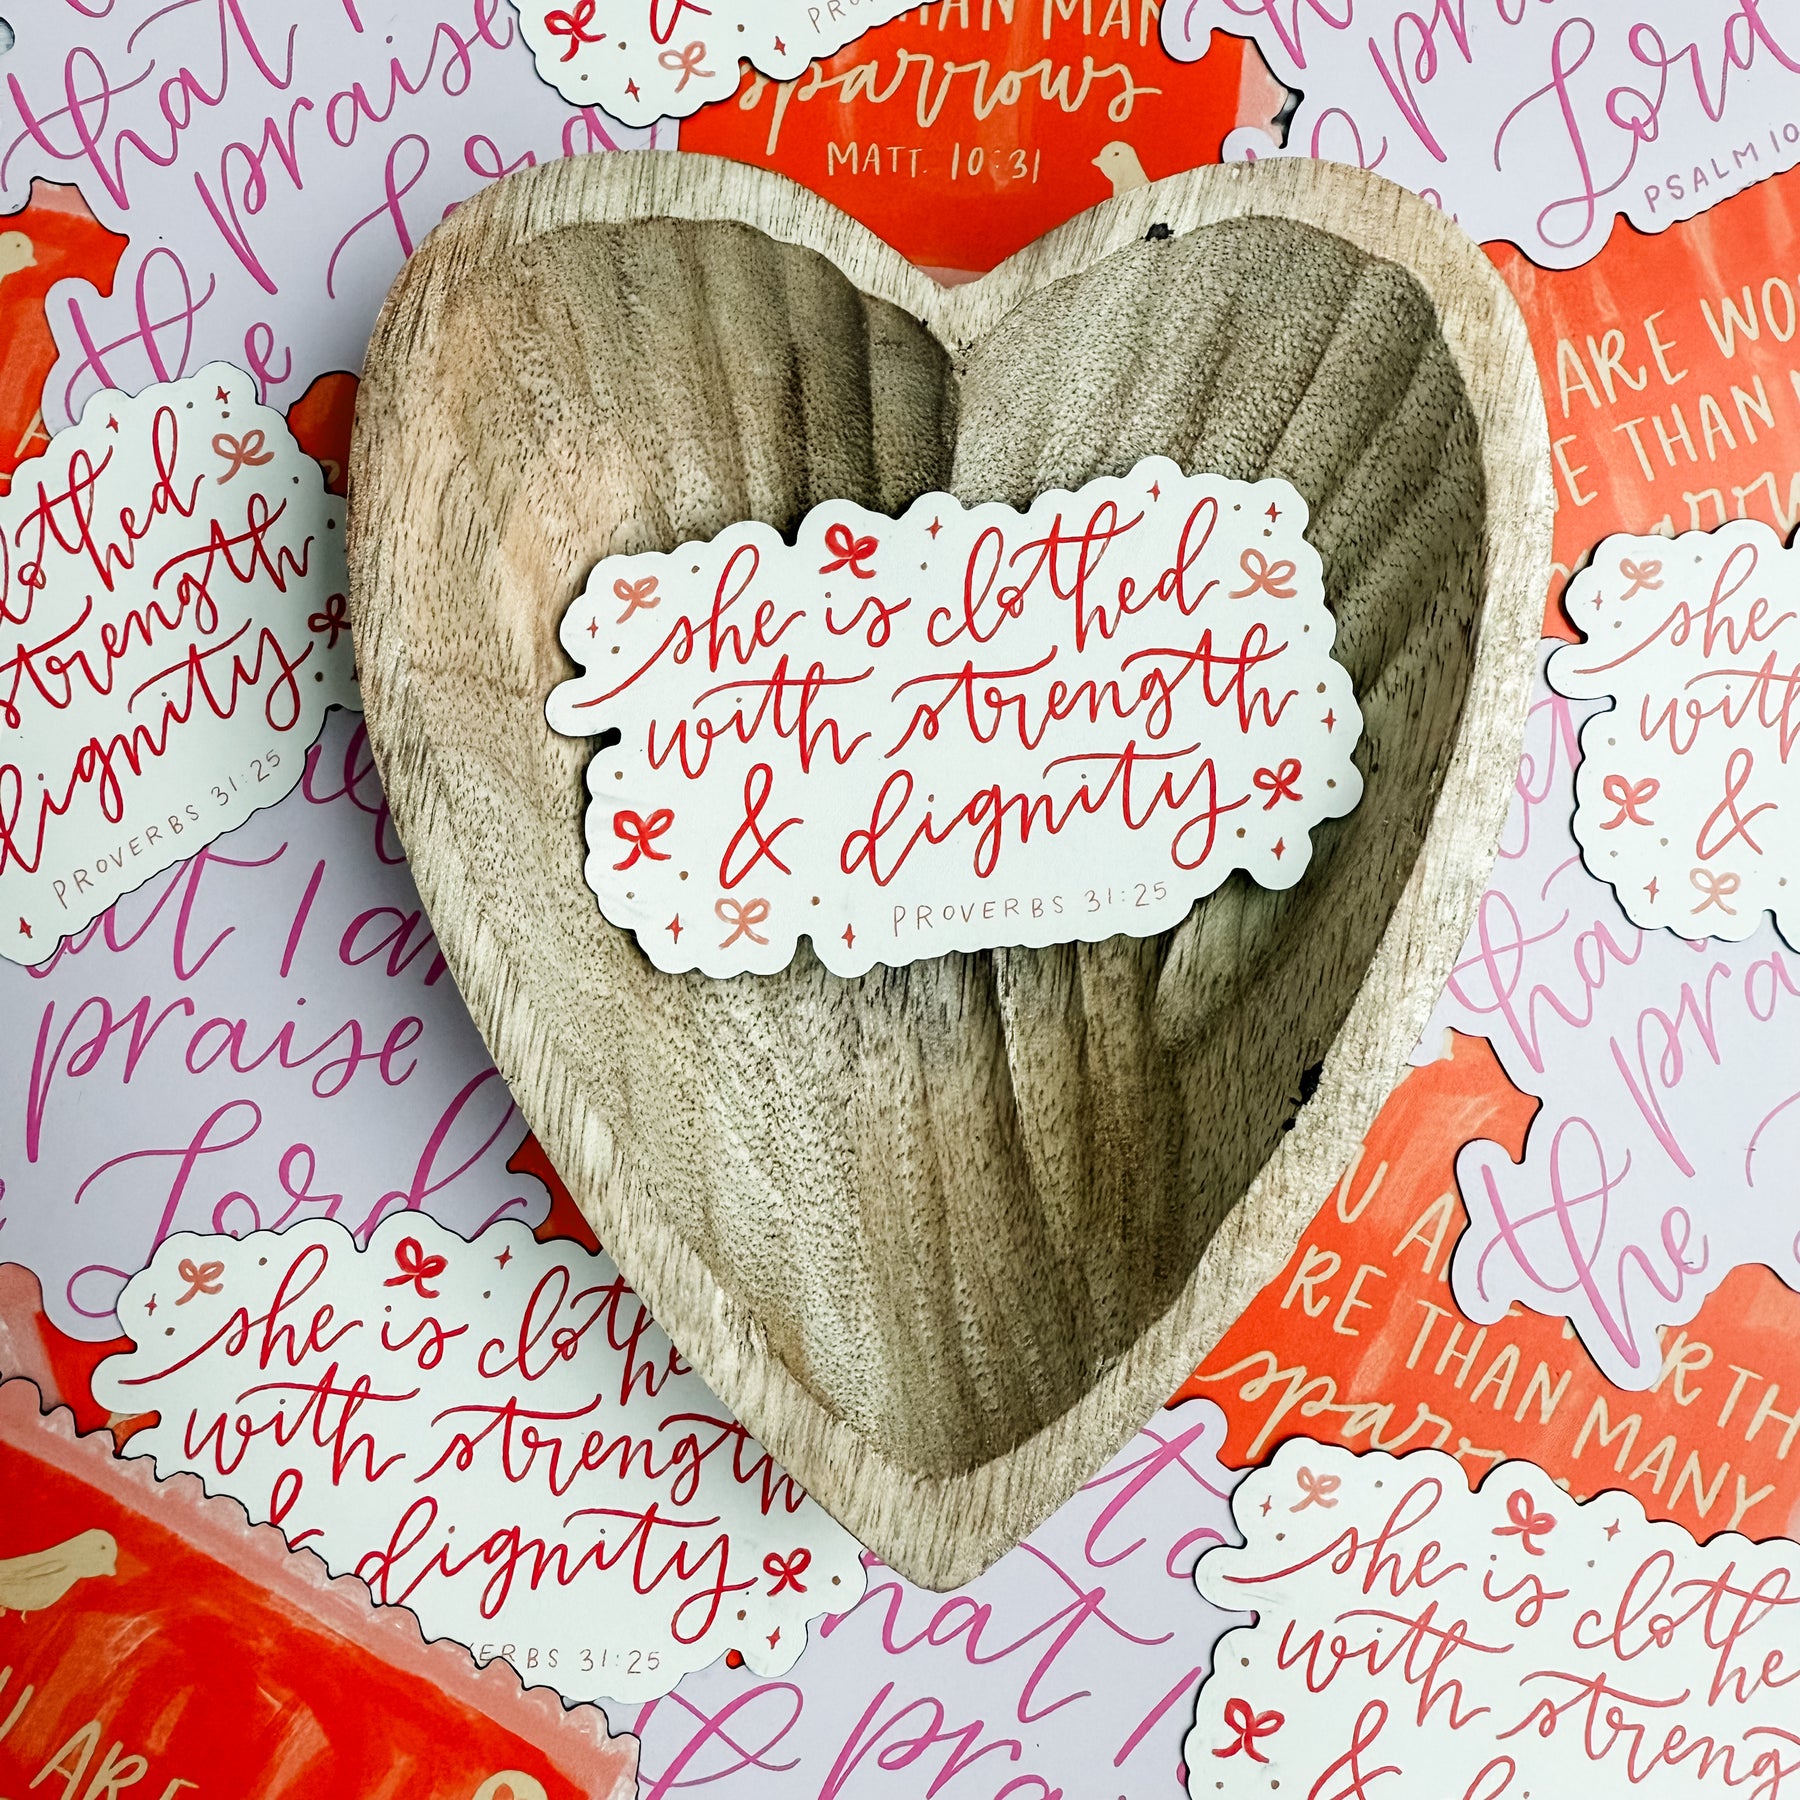 that
praise
Lord
the
PRO
THAN MAN
sparrows
MATT. 10:31
Lord
PSALM 10
ARE WO
E THAN
clothed
strength
dignity
PROVERBS 31:25
she is clothed
with strength
& dignity
PROVERBS 31:25
she
with
&
I am
praise
Lord
the
U A
RE THAN MANY
RTH
she is clothe
with strength
& dignity
ERBS 31:25
that
she is clothe
with streng
&
U ARE